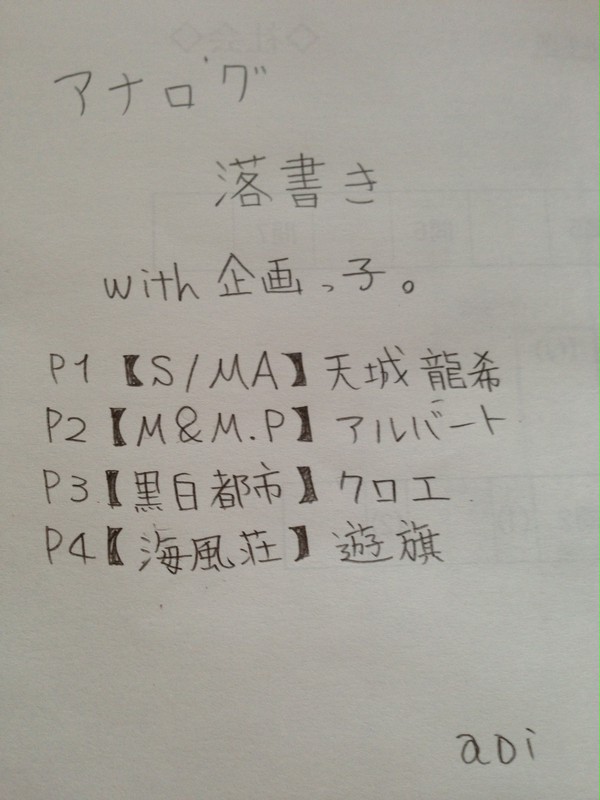 アナログ
落書き
with 企画っ子。
P1【S/MA】天城 龍希
P2【M&M.P】アルバート
P3【黒白都市】クロエ
P4【海風荘】遊旗
aoi